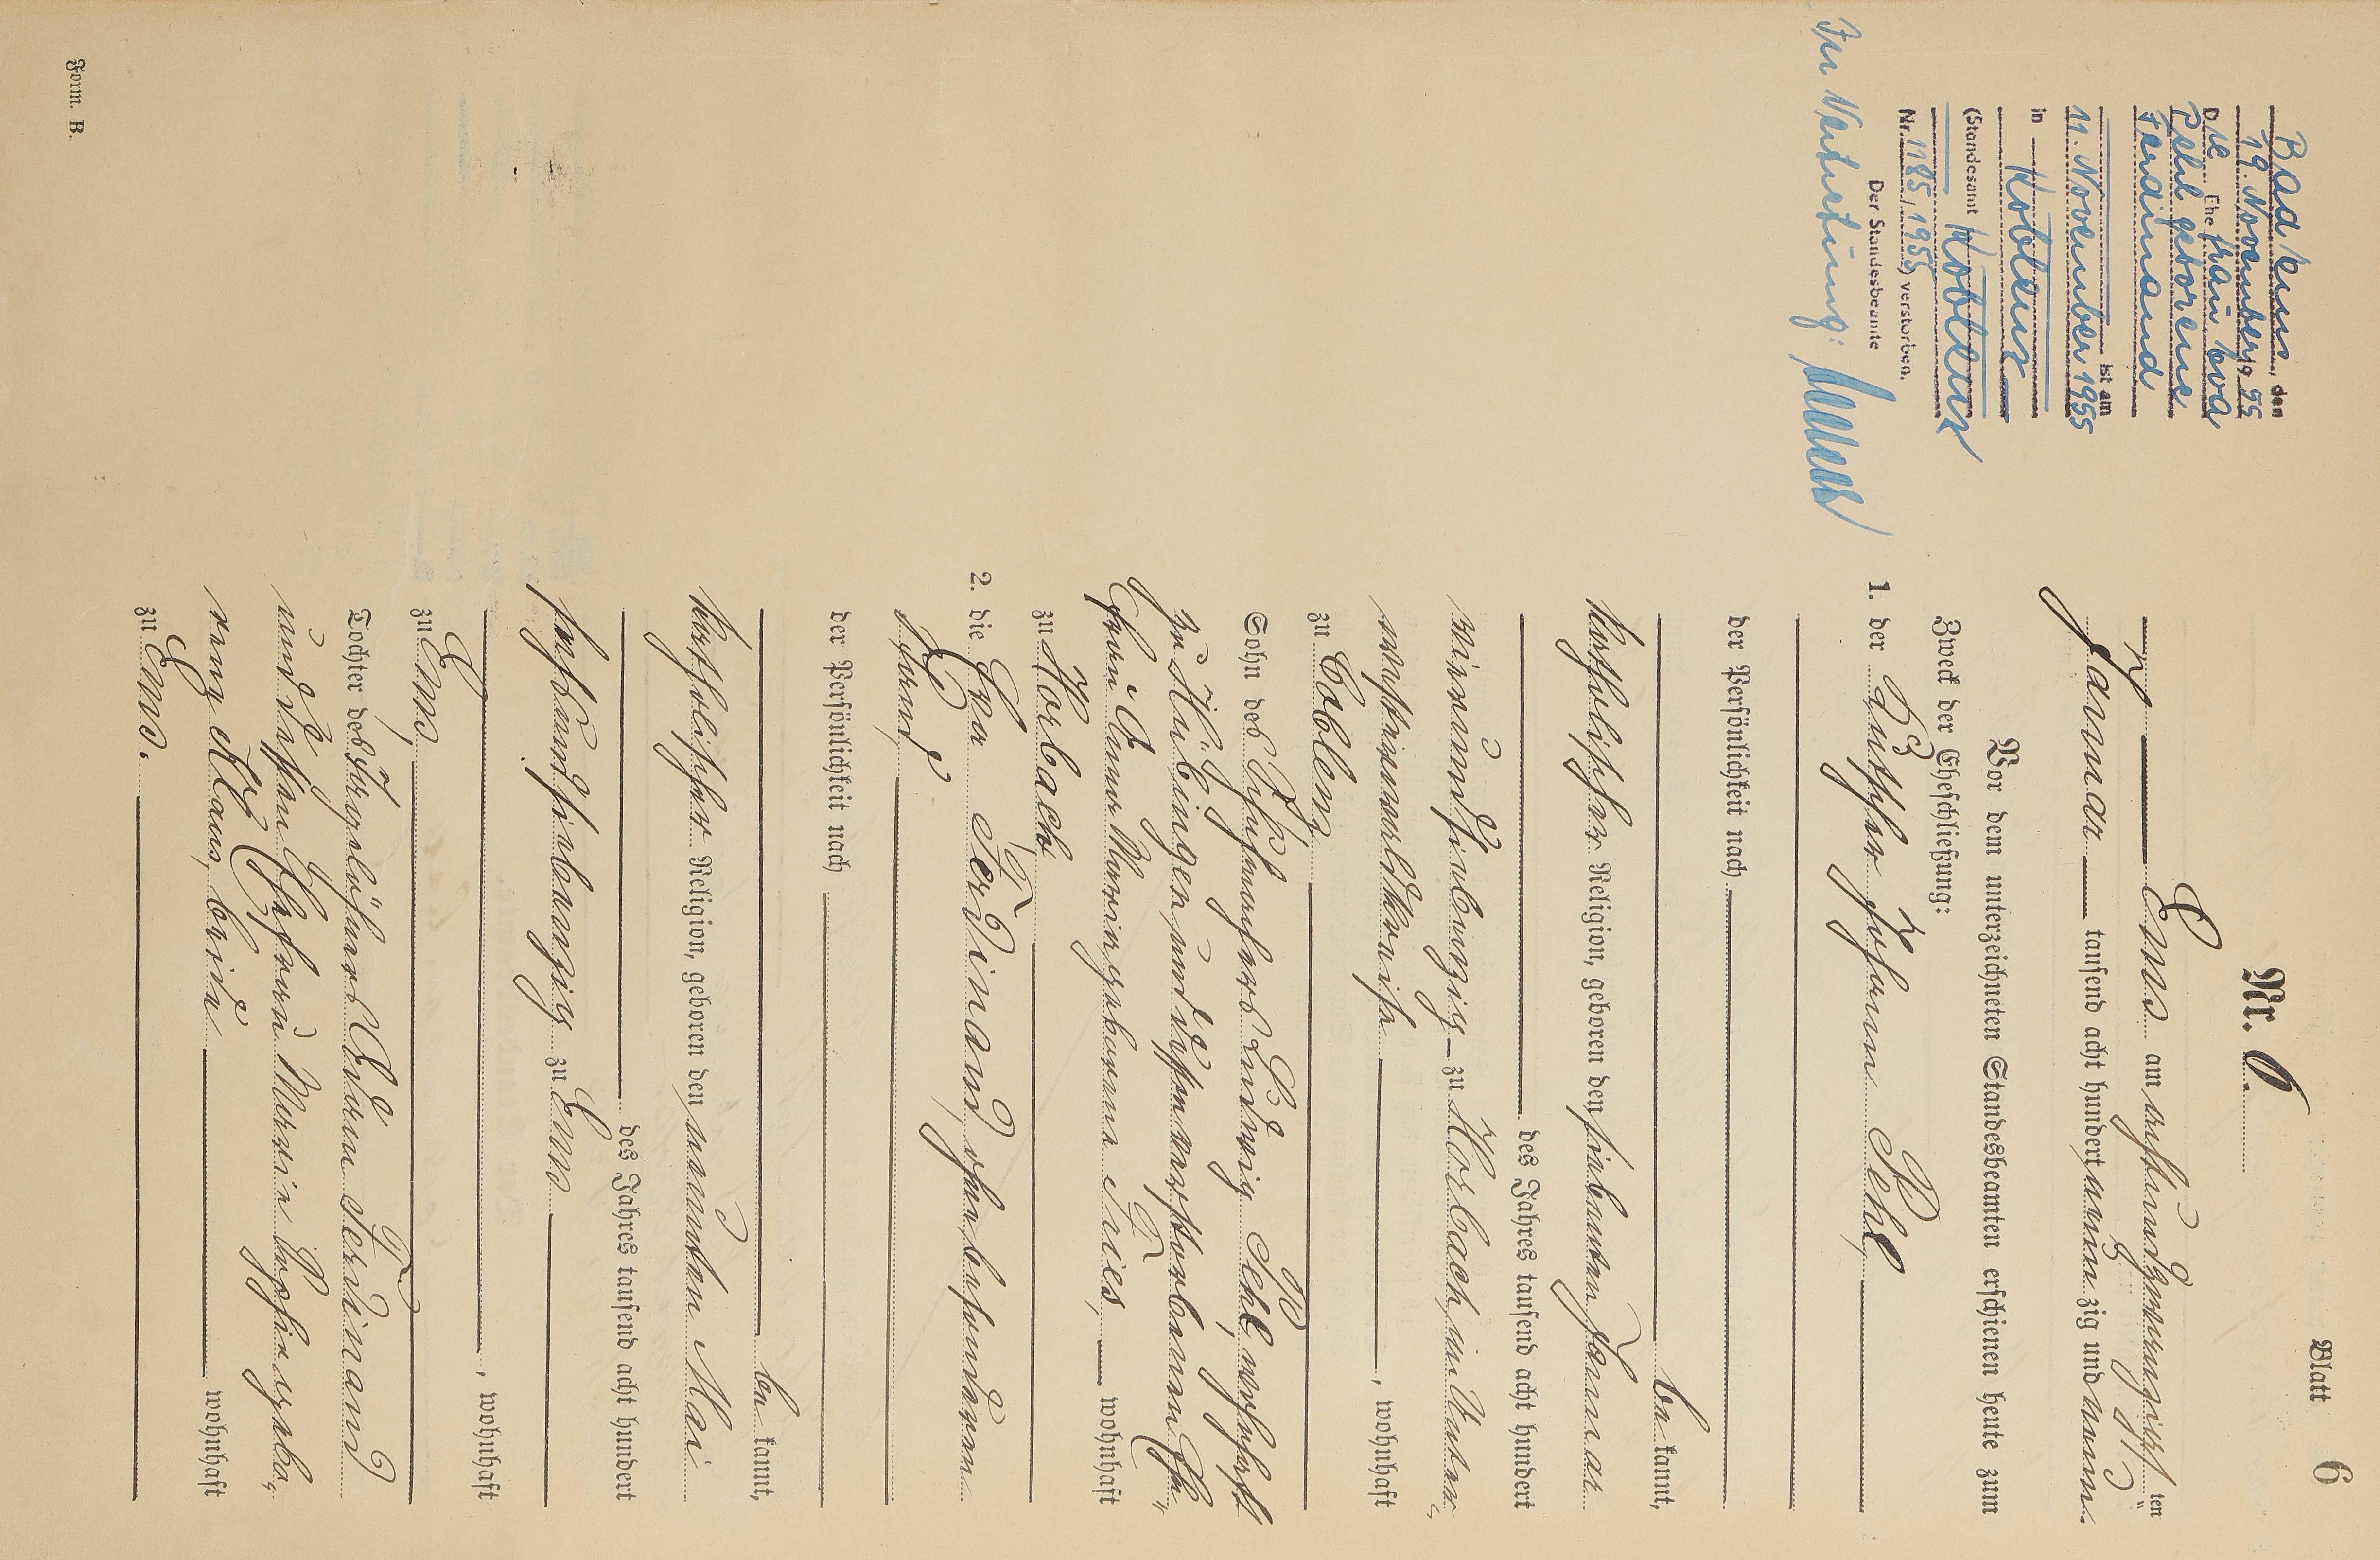 Blatt 6
Nr. 6.
Ems am achtundzwanzigsten ten
Januar tausend acht hundert neunzig und neun.
Vor dem unterzeichneten Standesbeamten erschienen heute zum
Zweck der Eheschließung:
1. der Kutscher Johann Pehl,
der Persönlichkeit nach
be kannt,
katholischer Religion, geboren den siebenten Januar
des Jahres tausend acht hundert
vierundsiebenzig zu Horbach, im Unter-
westerwaldkreise, wohnhaft
zu Coblenz,
Sohn des Schuhmachers Ludwig Pehl, wohnhaft
zu Hübingen, und dessen verstorbenen Ehe-
frau Anna Maria geborene Fries, wohnhaft
zu Horbach
2. die Eva Ferdinand, ohne besonderen
Stand,
der Persönlichkeit nach
be kannt,
katholischer Religion, geboren den neunten Mai
des Jahres tausend acht hundert
sechsundsiebenzig zu Ems
, wohnhaft
zu Ems,
Tochter des Tagelöhners Ferdinand
und dessen Ehefrau Maria Josefine gebo-
renen Klaus, beide wohnhaft
zu Ems.
Bad Ems, den
19. November 19 55
Die Ehefrau Eva
Pehl geborene
Ferdinand
ist am
11. November 1955
in Koblenz
(Standesamt Koblenz
Nr. 1185/1955) verstorben.
Der Standesbeamte
In Vertretung:
Form. B.